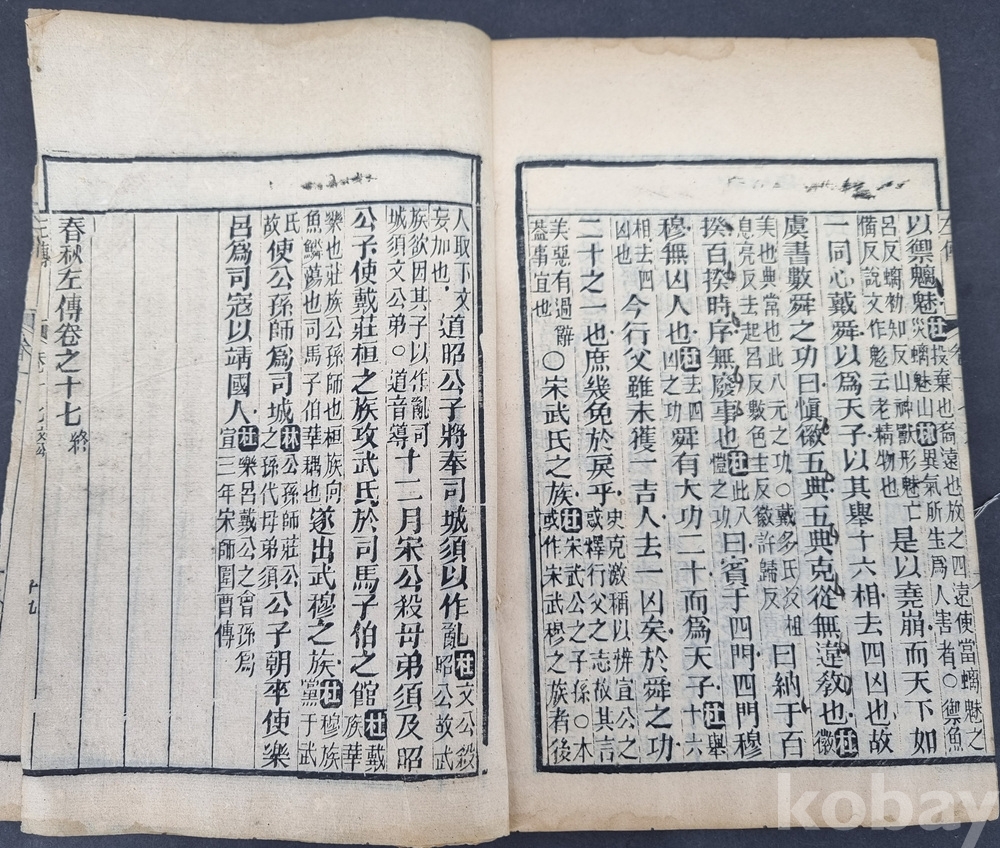 以禦魑魅杜投棄也裔遠也放之四遠使當螭魅之災螭魅山林異氣所生爲人害者○禦魚
呂反螭勑知反山神獸形魅亡備反說文作鬽云老精物也是以堯崩而天下如
一同心戴舜以爲天子以其舉十六相去四凶也故
虞書數舜之功曰愼徽五典五典克從無違敎也杜徽
美也典常也此八元之功○戴多氏反相息亮反去起呂反數色主反徽許歸反曰納于百
揆百揆時序無廢事也杜此八愷之功曰賓于四門四門穆
穆無凶人也杜去四凶之功舜有大功二十而爲天子杜舉十六
相去四凶也今行父雖未獲一吉人去一凶矣於舜之功
二十之一也庶幾免於戾乎史克激稱以辨宣公之或釋行父之志故其言
美惡有過辭蓋事宜也○宋武氏之族杜宋武公之子孫○本或作宋武穆之族者後
人取下文妄加也道昭公子將奉司城須以作亂杜文公殺昭公故武
族欲因其子以作亂司城須文公弟○道音導十二月宋公殺母弟須及昭
公子使戴莊桓之族攻武氏於司馬子伯之館杜戴族華
樂也莊族公孫師也桓族向魚鱗蕩也司馬子伯華耦也遂出武穆之族杜穆族黨于武
氏故使公孫師爲司城林公孫師莊公之孫代母弟須公子朝卒使樂
呂爲司寇以靖國人杜樂呂戴公之曾孫爲宣三年宋師圍曹傳
春秋左傳卷之十七終